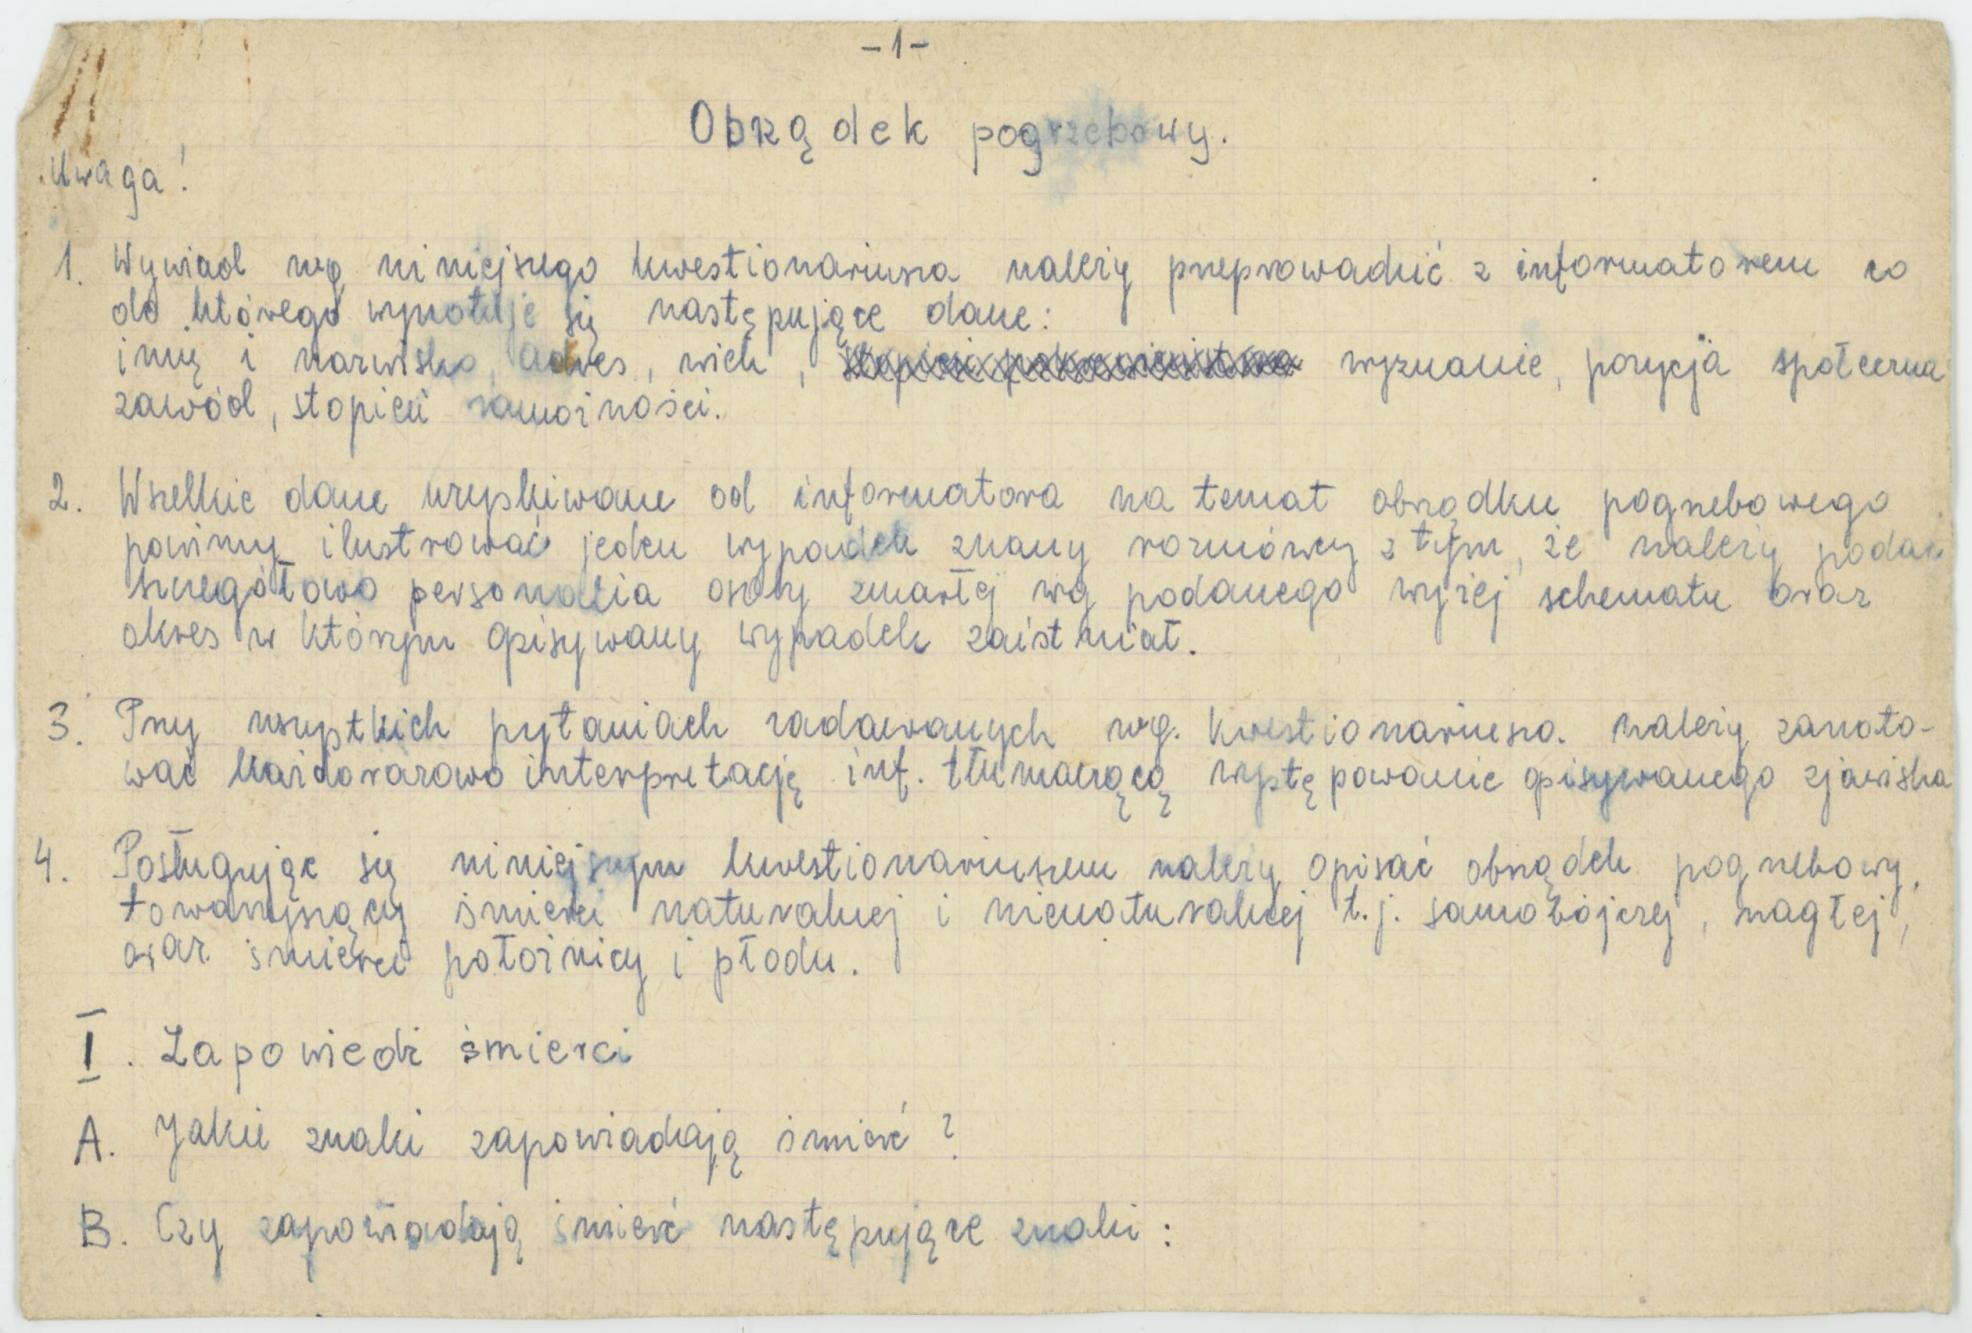 -1-
Obrządek pogrzebowy.
Uwaga!
1. Wywiad wg niniejszego kwestionariusza należy przeprowadzić z informatorem co
do którego wynotuje się następujące dane:
imię i nazwisko, adres, wiek, wyznanie, pozycja społeczna
zawód, stopień zamożności.
2. Wszelkie dane uzyskiwane od informatora na temat obrządku pogrzebowego
powinny ilustrować jeden wypadek znany rozmówcy z tym, że należy podać
szczegółowo personalia osoby zmarłej wg podanego wyżej schematu oraz
okres w którym opisywany wypadek zaistniał.
3. Przy wszystkich pytaniach zadawanych wg. kwestionariusza. należy zanoto-
wać każdorazowo interpretację inf. tłumaczącą występowanie opisywanego zjawiska
4. Posługując się niniejszym kwestionariuszem należy opisać obrządek pogrzebowy,
towarzyszący śmierci naturalnej i nienaturalnej t.j. samobójczej, nagłej,
oraz śmierci położnicy i płodu.
I. Zapowiedź śmierci
A. Jakie znaki zapowiadają śmierć?
B. Czy zapowiadają śmierć następujące znaki: